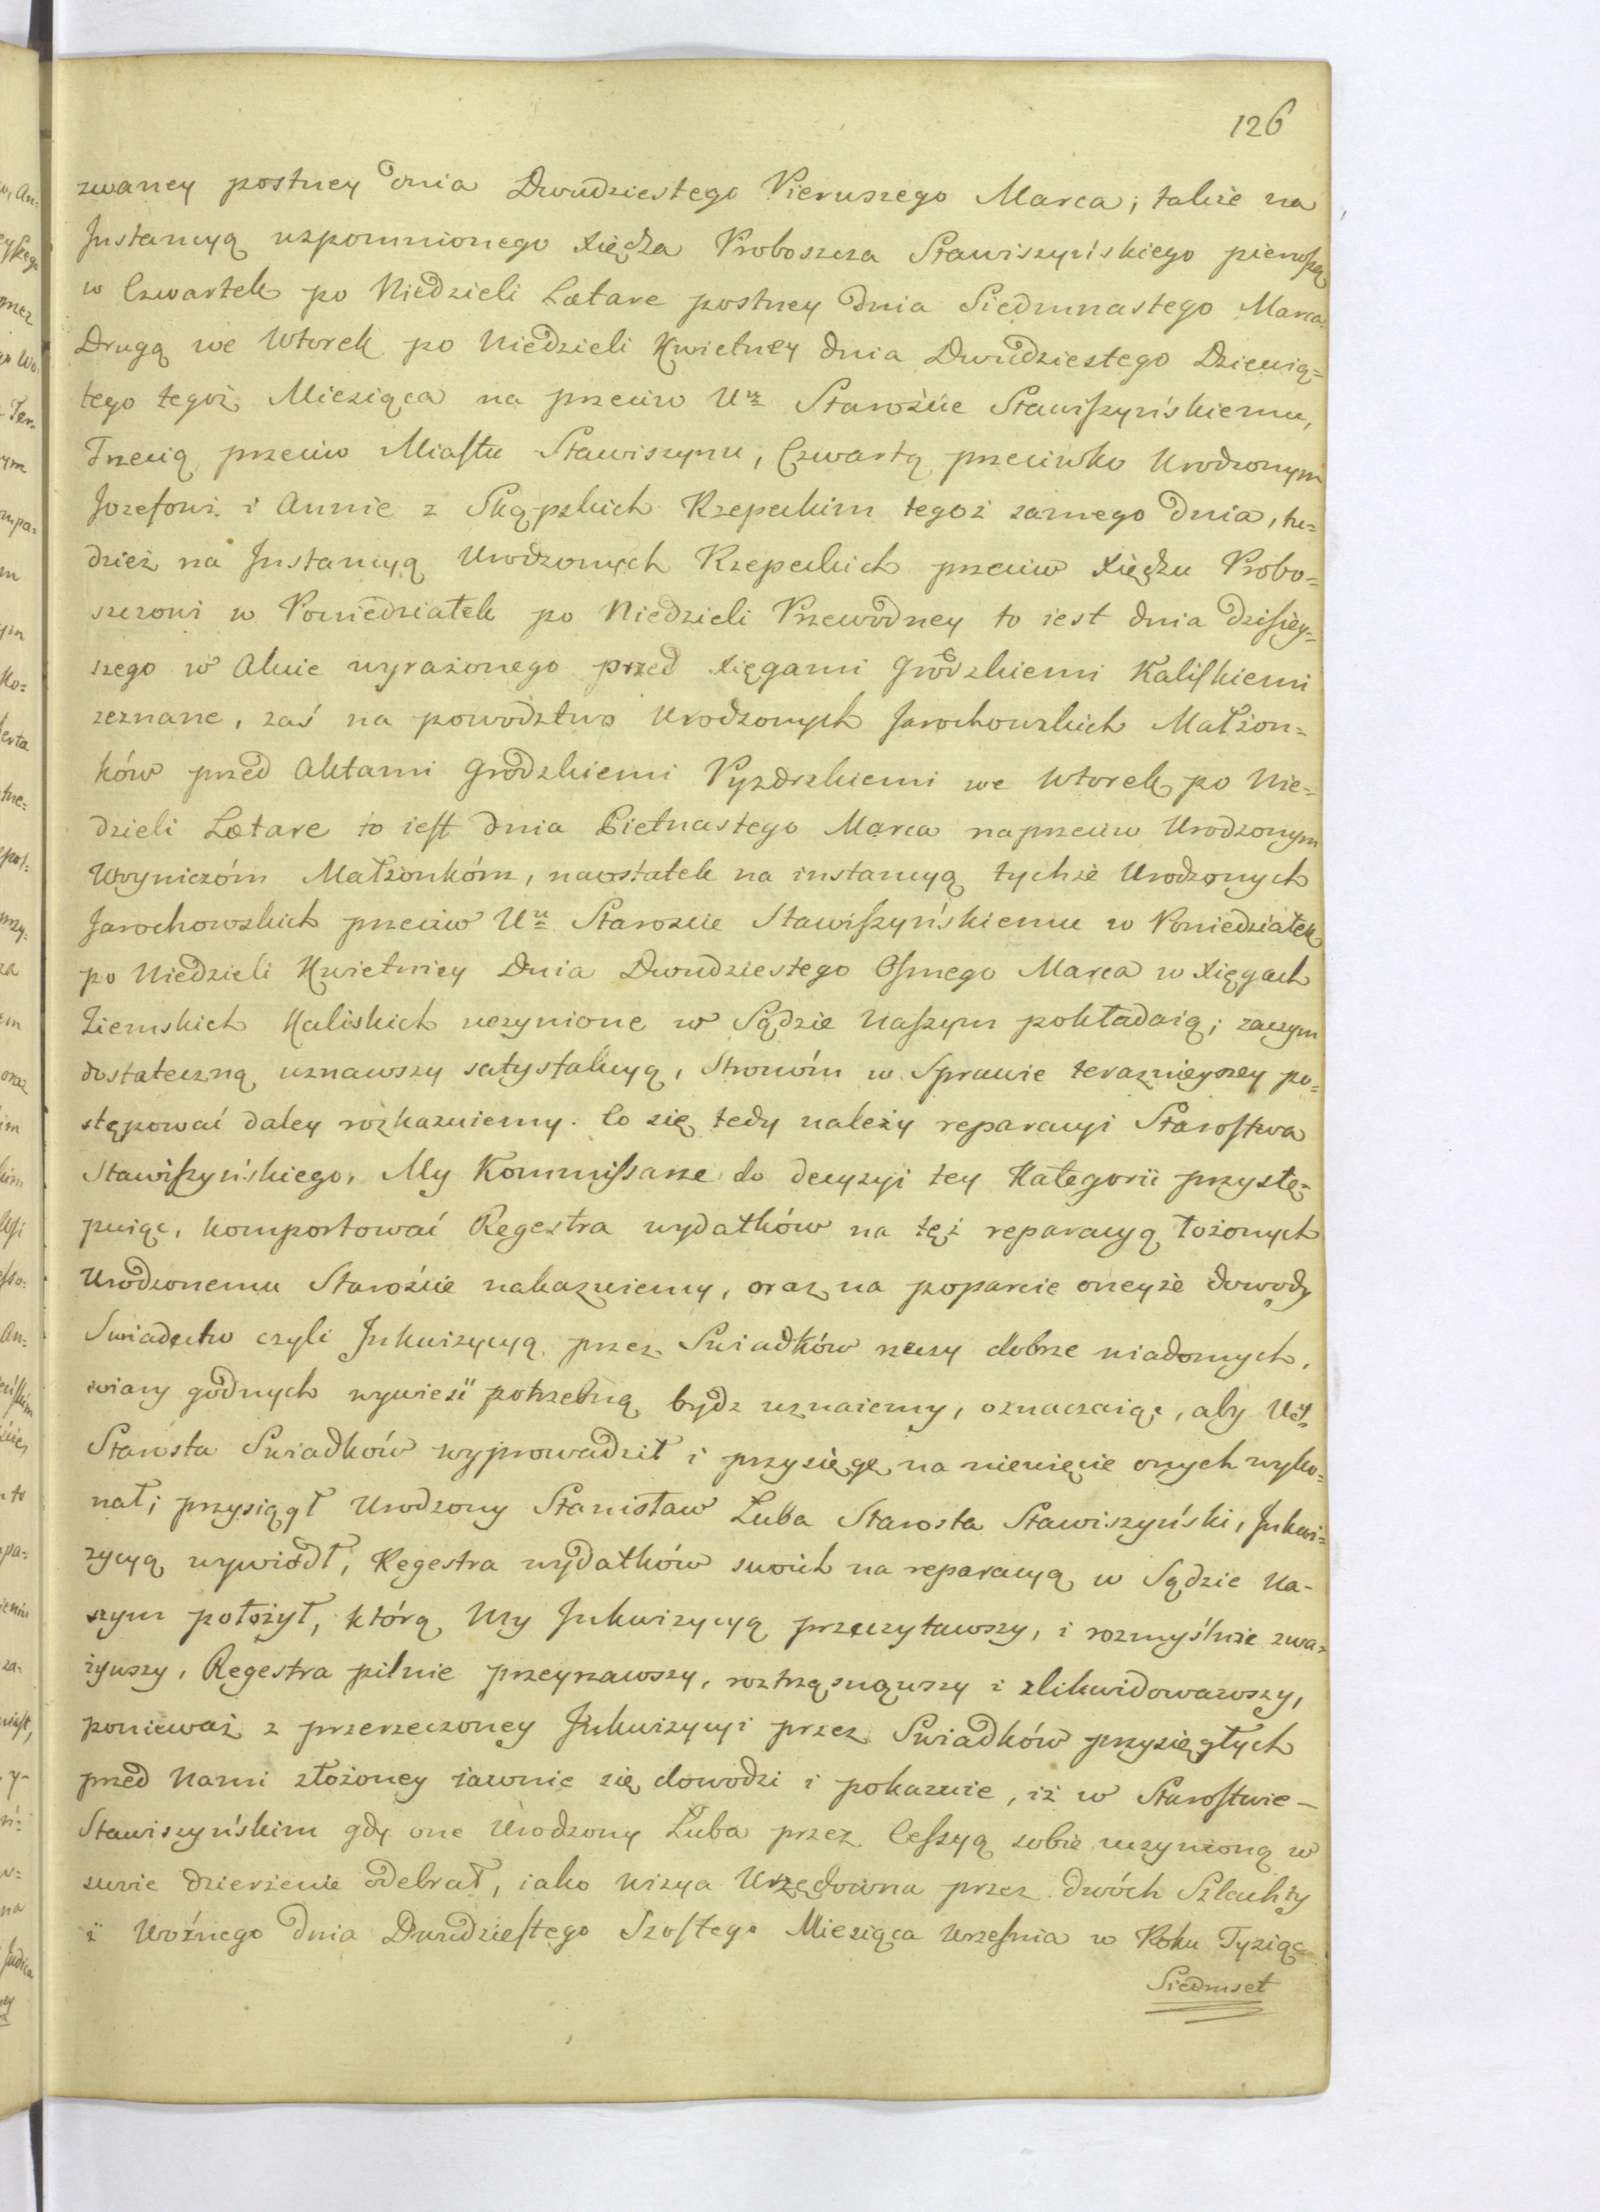 126
zwaney postney dnia Dwudziestego Pierwszego Marca; także na
Jnstancyą wzpomnionego Xiędza Proboszcza Stawiszyńskiego pierwszą
w Czwartek po Niedzieli Lætare postney dnia Siedmnastego Marca
Drugą we Wtorek po Niedzieli Kwietney dnia Dwudziestego Dziewią=
tego tegoż Miesiąca na przeciw Ur Starościе Stawiszyńskiemu,
Trzecią przeciw Miastu Stawiszynu, Czwartą przeciwko Urodzonym
Jozefowi i Annie z Skąpskich Rzepeckim tegoż samego dnia, tu=
dzież na Jnstancyą Urodzonych Rzepeckich przeciw Xiędzu Probo=
szczowi w Poniedziałek po Niedzieli Przewodney to iest dnia dzisiey=
szego w Akcie wyrażonego przed Xięgami Grodzkiemi Kaliskiemi
zeznane, zaś na powodztwo Urodzonych Jarochowskich Małżon=
ków przed Aktami Grodzkiemi Pyzdrskiemi we Wtorek po Nie=
dzieli Lætare to iest dnia Pietnastego Marca naprzeciw Urodzonym
Małżonkóm, naostatek na instancyą tychże Urodzonych
Jarochowskich przeciw Ur Starościе Stawiszyńskiemu w Poniedziałek
po Niedzieli Kwietniey Dnia Dwudziestego Osmego Marca w Xięgach
Ziemskich Kaliskich uczynione w Sądzie Naszym pokładaią; zaczym
dostateczną uznawszy satysfakcyą, Stronóm w Sprawie teraznieyszey po=
stępować daley rozkazuiemy. Co się tedy należy reparacyi Starostwa
Stawiszyńskiego, My Kommissarze do decyzyi tey Kategorii przystę=
puiąc, komportować Regestra wydatków na tęż reparacyą łożonych
Urodzonemu Starościе nakazuiemy, oraz na poparcie oneyże dowody
Swiadectw czyli Jnkwizycyą przez Swiadków rzeczy dobrze wiadomych,
wiary godnych wywieść potrzebną bydz uznaiemy, oznaczaiąc, aby
Starosta Swiadków wyprowadził i przysięgę na niewięcie onych wyko=
nał; przysiągł Urodzony Stanisław Łuba Starosta Stawiszyński, Jnkwi=
zycyą wywiodł, Regestra wydatków swoich na reparacyą w Sądzie Na-
szym położył, którą My Jnkwizycyą przeczytawszy, i rozmyślnie zwa=
żywszy, Regestra pilnie przeyrzawszy, roztrząsnąwszy i zlikwidowawszy,
ponieważ z przerzeczoney Jnkwizycyi przez Swiadków przysięgłych
przed Nami złożoney iawnie się dowodzi i pokazuie, iż w Starostwie-
Stawiszyńskim gdy one Urodzony Łuba przez Cesszyą sobie uczynioną w
swoie dzierżenie odebrał, iako wizya Urzędowna przez dwóch Szlachty
i Woźnego dnia Dwudziestego Szostego Miesiąca Września w Roku Tysiąc
Siedmset